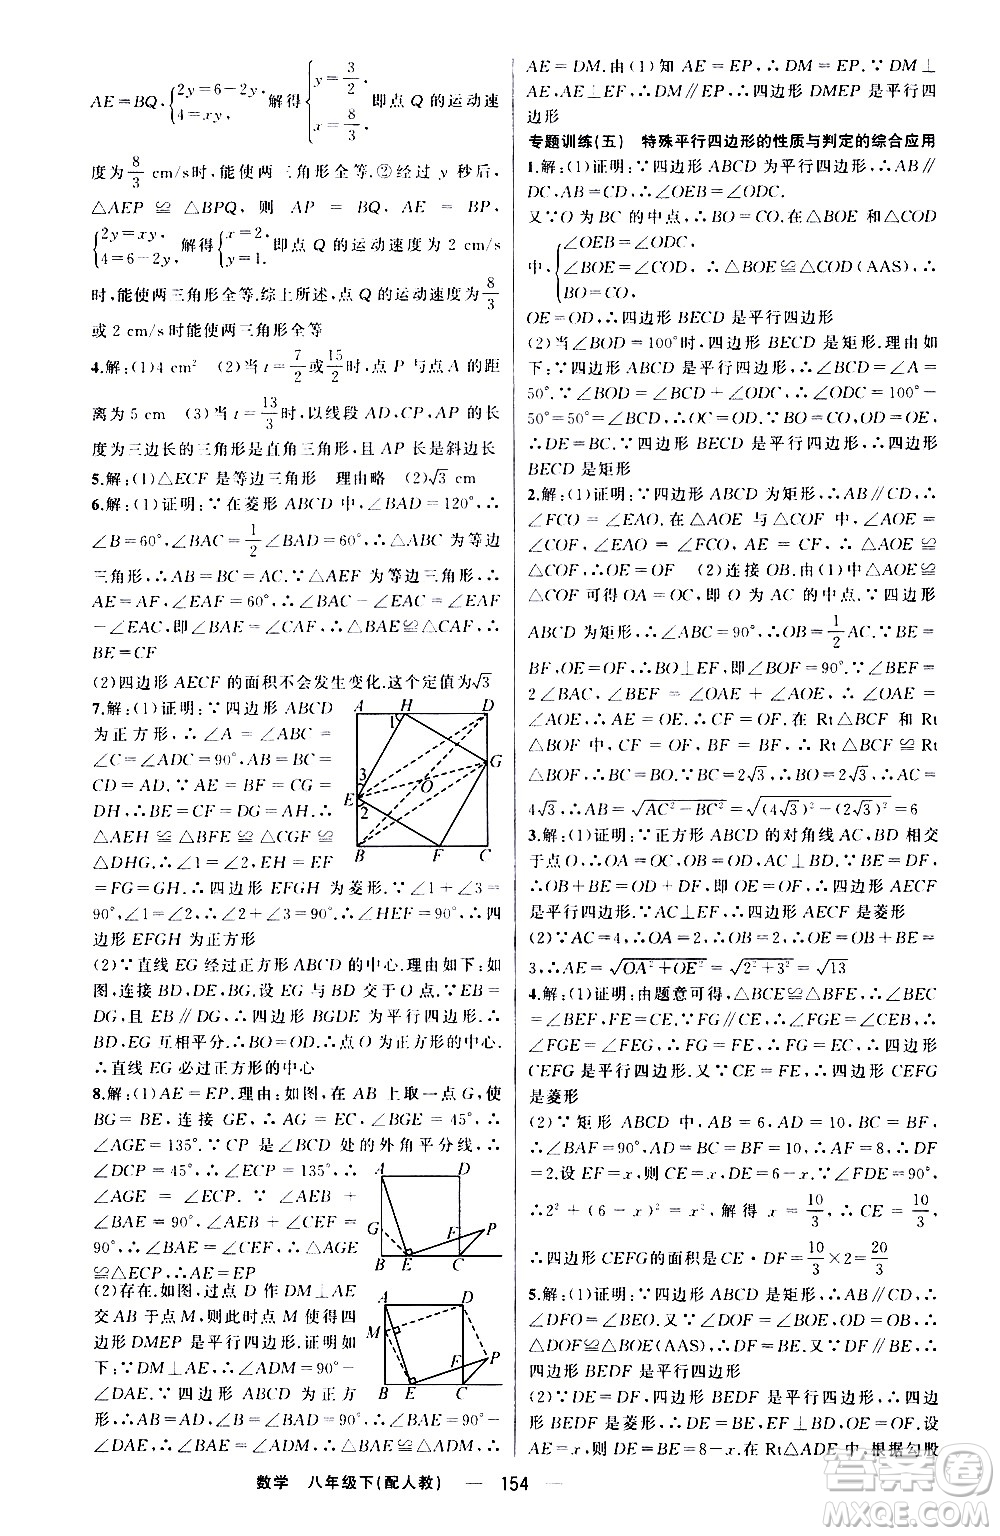 AE=BQ,{2y=6-2y, 4=xy, 解得{y=3/2, x=8/3, 即点 Q 的运动速
度为 8/3 cm/s时,能使两三角形全等.②经过 y 秒后,
△AEP ≌ △BPQ, 则 AP = BQ, AE = BP,
{2y=xy, 4=6-2y, 解得{x=2, y=1. 即点 Q 的运动速度为 2 cm/s
时,能使两三角形全等.综上所述,点 Q 的运动速度为 8/3
或 2 cm/s时能使两三角形全等
4.解:(1)4 cm² (2)当 t=7/2 或 15/2 时,点 P 与点 A 的距
离为 5 cm (3)当 t=13/3 时,以线段 AD,CP,AP 的长
度为三边长的三角形是直角三角形,且 AP 长是斜边长
5.解:(1)△ECF 是等边三角形 理由略 (2)√3 cm
6.解:(1)证明:∵在菱形 ABCD 中,∠BAD=120°,∴
∠B=60°,∠BAC=1/2∠BAD=60°,∴△ABC 为等边
三角形,∴AB=BC=AC.∵△AEF 为等边三角形,∴
AE=AF,∠EAF=60°,∴∠BAC-∠EAC=∠EAF
-∠EAC,即∠BAE=∠CAF,∴△BAE≌△CAF,∴
BE=CF
(2)四边形 AECF 的面积不会发生变化.这个定值为√3
7.解:(1)证明:∵四边形 ABCD
为正方形,∴∠A=∠B=
∠C=∠ADC=90°,AB=BC=
CD=DA.∵AE=BF=CG=
DH,∴BE=CF=DG=AH,∴
△AEH ≌ △BFE ≌ △CGF ≌
△DHG,∴∠1=∠2,EH=EF
=FG=GH.∴四边形 EFGH 为菱形.∵∠1+∠3=
90°,∠1=∠2,∴∠2+∠3=90°,∴∠HEF=90°,∴四
边形 EFGH 为正方形
(2)∵直线 EG 经过正方形 ABCD 的中心.理由如下:如
图,连接 BD,DE,BG,EG 与 BD 交于 O 点.∵BE=DG,
且 EB∥DG,∴四边形 BGDE 为平行四边形,∴
BD,EG 互相平分.∴BO=OD.∴点 O 为正方形的中心.
∴直线 EG 必过正方形的中心
8.解:(1)AE=EP.理由:如图,在 AB 上取一点 G,使
BG=BE,连接 GE,∴AG=EC,∠BGE=45°,∴
∠AGE=135°.∵CP 是∠BCD 处的外角平分线,∴
∠DCP=45°,∴∠ECP=135°,∴
∠AGE = ∠ECP. ∵ ∠AEB +
∠BAE=90°,∠AEB+∠CEF=
90°,∴∠BAE=∠CEF,∴△AGE
≌△ECP,∴AE=EP
(2)存在.如图,过点 D 作 DM⊥AE
交 AB 于点 M,则此时点 M 使得四
边形 DMEP 是平行四边形.证明如
下:∵DM⊥AE,∴∠ADM+
∠DAE=90°.∵∠BAE+∠DAE=90°,∴∠ADM=
∠DAE.∵四边形 ABCD 为正方
形,∴AB=AD,∠B=
∠DAE,∴△ABE≌△DAM,∴
AE=DM.由(1)知 AE=EP,∴DM=EP.∵DM⊥
AE,AE⊥EF,∴DM∥EP,∴四边形 DMEP 是平行四
边形
专题训练(五) 特殊平行四边形的性质与判定的综合应用
1.解:(1)证明:∵四边形 ABCD 为平行四边形,∴AB∥
DC,AB=CD,∴∠OEB=∠ODC.
又∵O 为 BC 的中点,∴BO=CO.在△BOE 和△COD
中,{∠OEB=∠ODC, ∠BOE=∠COD, BO=CO, ∴△BOE≌△COD(AAS),∴
OE=OD,∴四边形 BECD 是平行四边形
(2)当∠BOD=100°时,四边形 BECD 是矩形.理由如
下:∵四边形 ABCD 是平行四边形,∴∠BCD=∠A=
50°.∵∠BOD=∠BCD+∠ODC,∴∠ODC=100°-
50°=50°=∠BCD,∴OC=OD.∵BO=CO,OD=OE,
∴DE=BC.∵四边形 BECD 是平行四边形,∴四边形
BECD 是矩形
2.解:(1)证明:∵四边形 ABCD 为矩形,∴AB∥CD,∴
∠FCO=∠EAO.在△AOE 与△COF 中,∠AOE=
∠COF,∠EAO=∠FCO,AE=CF,∴△AOE≌
△COF,∴OE=OF (2)连接 OB.由(1)知△AOE≌
△COF 可得 OA=OC,即 O 为 AC 的中点.∵四边形
ABCD 为矩形,∴∠ABC=90°,∴OB=1/2AC.∵BE=
BF,OE=OF,∴BO⊥EF,即∠BOF=90°.∵∠BEF=
∴AE=CF=OF.在 Rt△BCF 和 Rt
△BOF 中,
4√3,∴AB=√(AC²-BC²)=√((4√3)²-(2√3)²)=6
3.解:(1)证明:∵正方形 ABCD 的对角线 AC,BD 相交
于点 O,∴OA=OC,OB=OD,AC⊥BD.∵BF=DE,
∴OB+BF=OD+DE,即 OF=OE,∴四边形 AECF
是平行四边形.∵AC⊥EF,∴四边形 AECF 是菱形
(2)∵AC=4,∴OA=2,∴OB=2,∴OE=OD+DE=
3,∴AE=√(OA²+OE²)=√(2²+3²)=√13
4.解:(1)证明:由题意可得,△BCE≌△BFE,∴∠BEC
=∠BEF,FE=CE.∵FG∥CE,∴∠FGE=∠CEB,∴
∠FGE=∠FEG,∴FG=FE,∴FG=EC,∴四边形
CEFG 是平行四边形.又∵CE=FE,∴四边形 CEFG
是菱形
(2)∵矩形 ABCD 中,AB=6,AD=10,BC=BF,
∴∠BAF=90°,AD=BC=BF=10,∴AF=8,∴DF
=2.设 EF=x,则 CE=x,DE=6-x.∵∠FDE=90°,
∴2²+(6-x)²=x², 解得 x=10/3, ∴CE=10/3,
∴四边形 CEFG 的面积是 CE·DF=10/3×2=20/3
5.解:(1)证明:∵四边形 ABCD 是矩形,∴AB∥CD,∴
∠DFO=∠BEO.又∵∠DOF=∠BOE,OD=OB,∴
△DOF≌△BOE(AAS),∴DF=BE.又∵DF∥BE,∴
四边形 BEDF 是平行四边形
(2)∵DE=DF,四边形 BEDF 是平行四边形,∴四边
形 BEDF 是菱形,∴DE=BE,EF⊥BD,OE=OF,设
AE=x,则 DE=BE=8-x.在 Rt△ADE 中,根据勾股
数学 八年级下(配人教) — 154 —